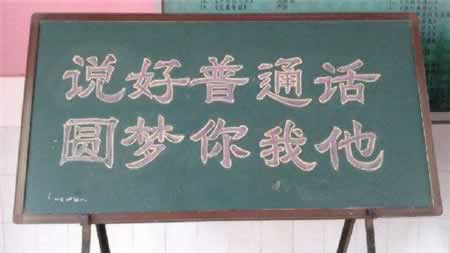 说好普通话
圆梦你我他